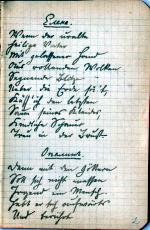 Елена.
Wenn der uralte
Heilige Vater
Mit gelassener Hand
Aus rollenden Wolken
Segnende Blitze
Über die Erde sä't,
Küss' ich den letzten
Saum seines Kleides,
Kindliche Schauer
Treu in der Brust.
Denn mit den Göttern
Soll sich nicht messen
Irgend ein Mensch.
Hebt er sich aufwärts
Und berührt